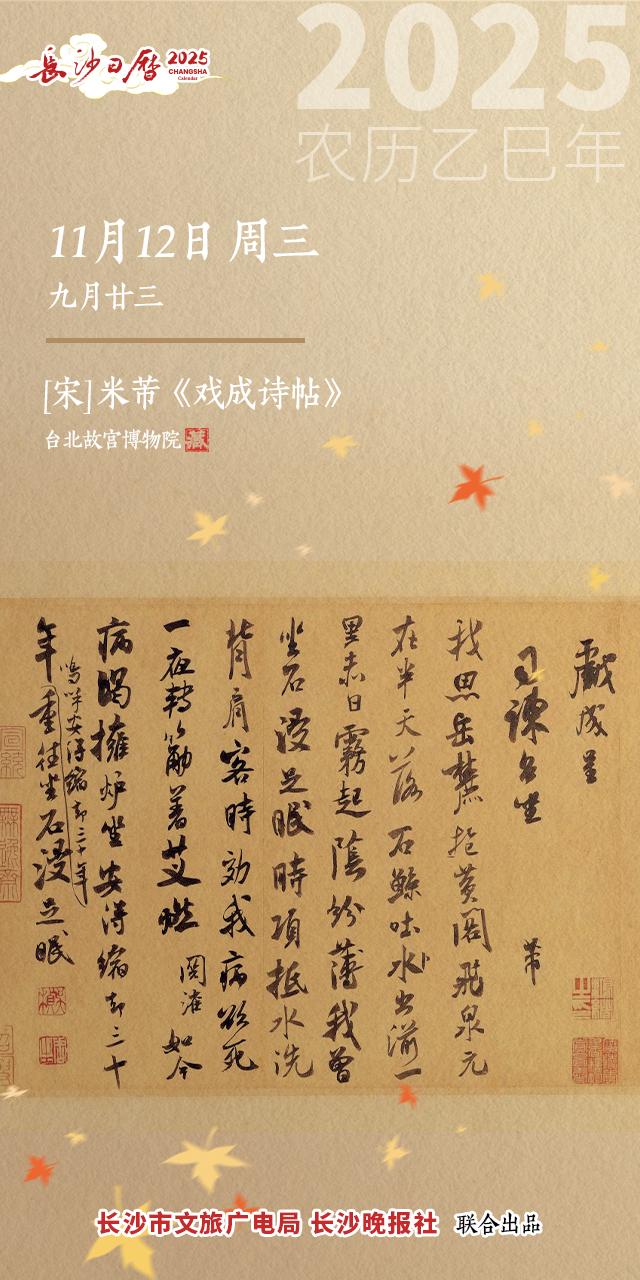 長沙日曆 2025
CHANGSHA
Calendar
2025
农历乙巳年
11月12日 周三
九月廿三
[宋]米芾《戏成诗帖》
台北故宫博物院 藏
戲成呈
司諫台坐 芾
我思岳麓抱黄閣飛泉元
在半天落石鯨吐水出湔一
里赤日霧起陰紛薄我曾
坐石浸足眠時項抵水洗
背肩客時効我病欲死
一夜轉筋著艾燃 関灌如今
病渴擁炉坐安得縮却三十
年重往坐石浸足眠
嗚呼安得縮却三十年
长沙市文旅广电局 长沙晚报社 联合出品